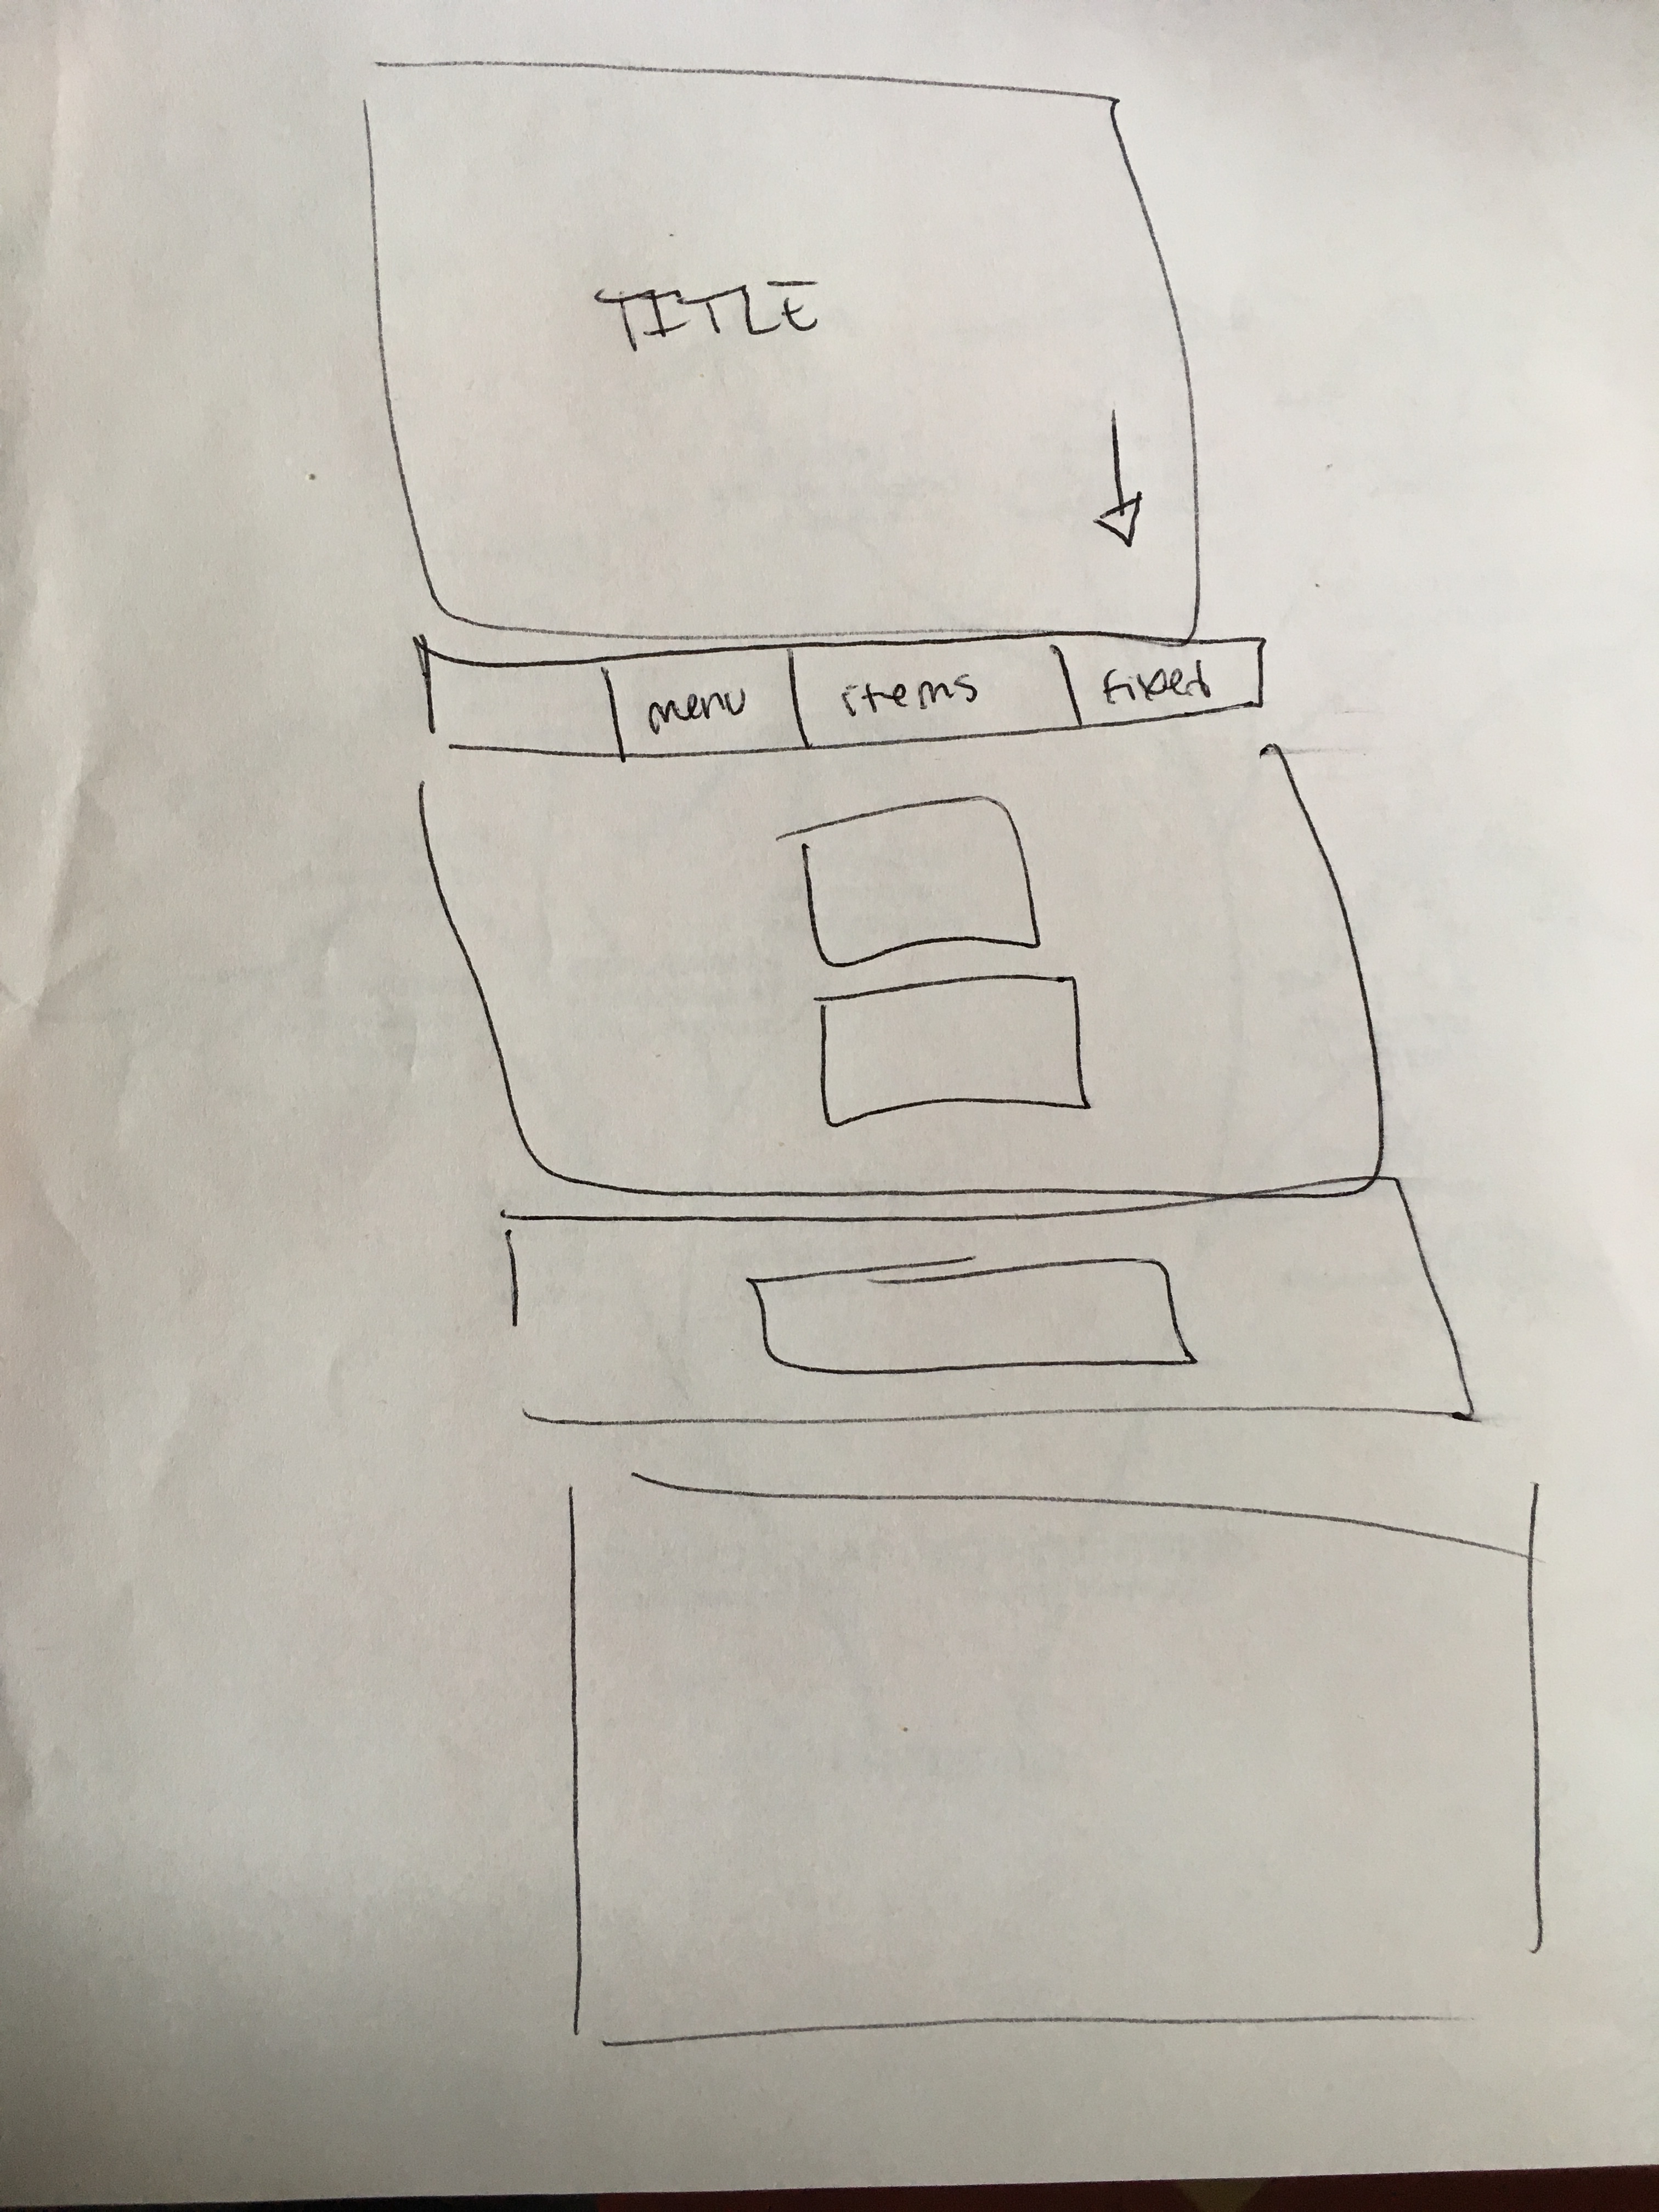 TITLE
menu items fixed